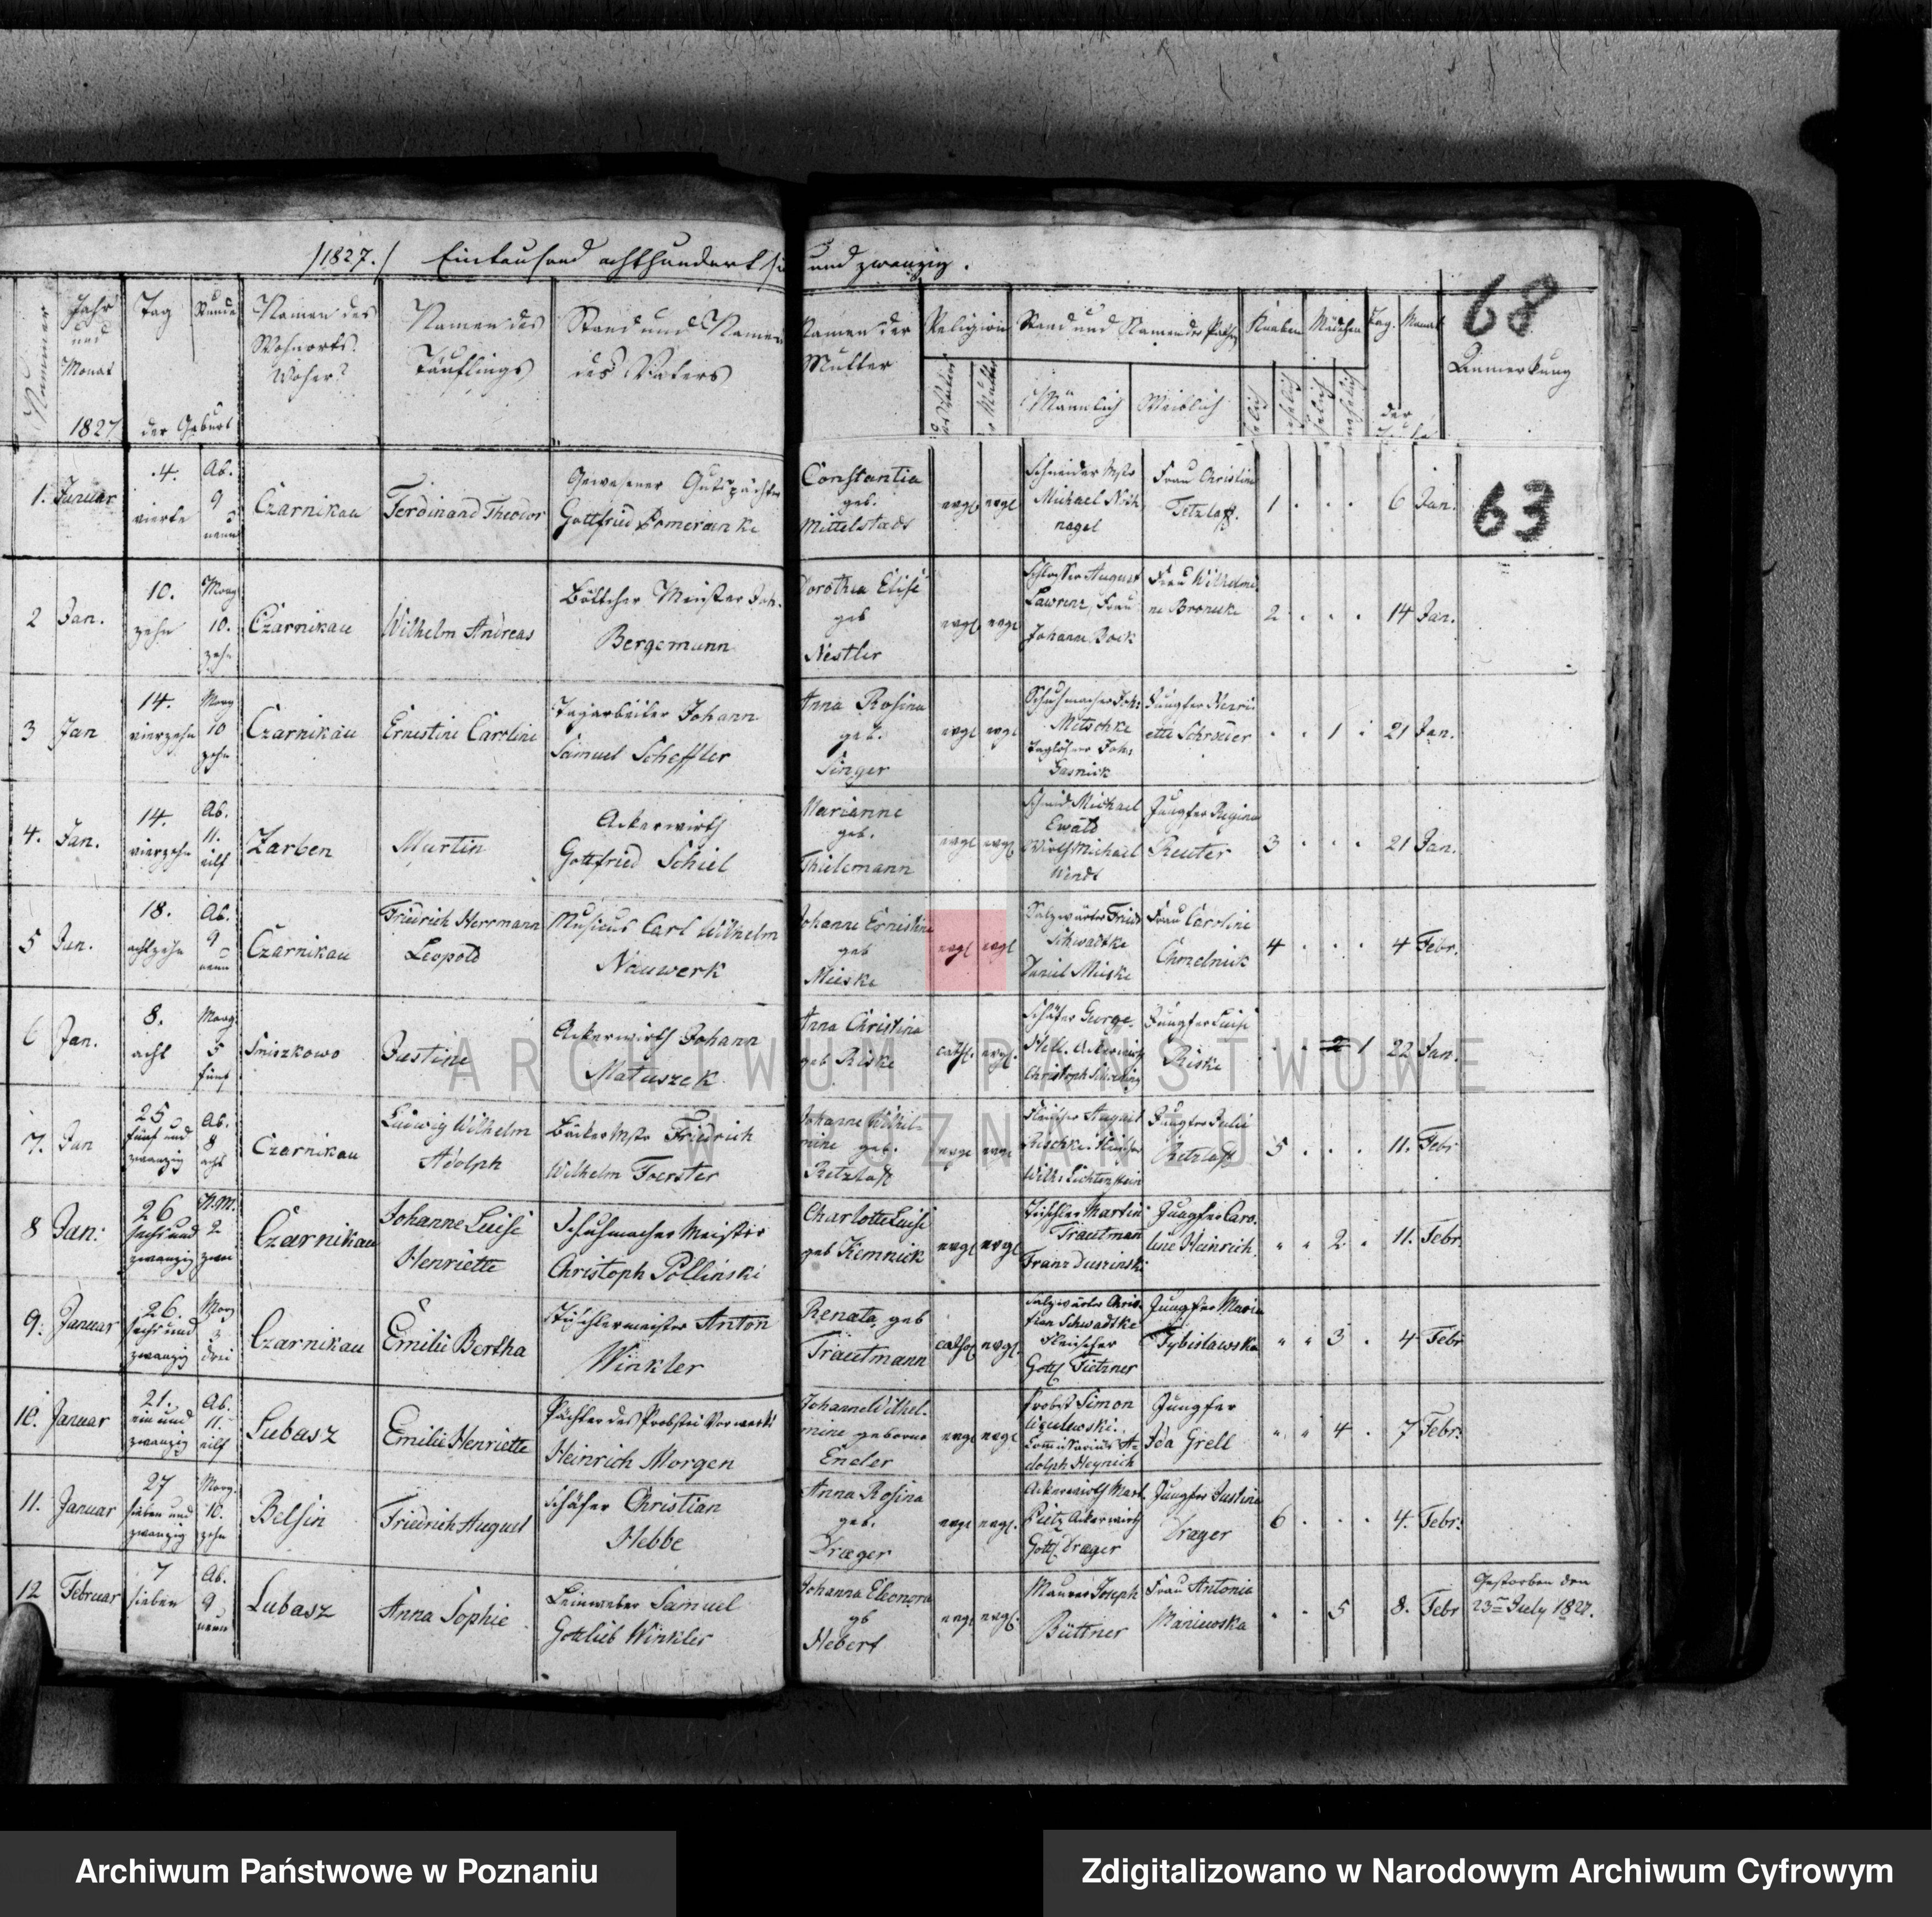 /1827./ Eintausend achthundert und zwanzig.
68
Nummer
Jahr und Monat 1827
Tag
Stunde
der Geburt
Namen des Wohnorts. Woher?
Namen des Täuflings
Stand und Namen des Vaters
Namen der Mutter
Religion
Stand und Namen der Pathen
Männlich
Weiblich
Knaben
Mädchen
Tag.
Monat
der
Anmerkung
63
1. Januar
.4. vierte
Ab. 9 neun
Czarnikau
Ferdinand Theodor
Gewesener Gutspächter
Gottfried Pomeranke
Constantia
geb.
Mittelstadt
evgl evgl
Schneider Mstr
Michael
nagel
Frau Christine
Tetzlaff.
1 . . . 6 Jan.
2 Jan.
10. zehn
Morg 10. zehn
Czarnikau
Wilhelm Andreas
Böttcher Meister Joh.
Bergemann
Dorothea Elise
geb
Nestler
evgl evgl
Schlosser August
Lawrenz, Frau
Johanne Bock
Frau Wilhelmi
ne Bronuke
2 . . . 14 Jan.
3 Jan
14. vierzehn
Morg 10 zehn
Czarnikau
Ernestine Caroline
Tagarbeiter Johann
Samuel Scheffler
Anna Rosina
geb.
Singer
evgl evgl
Schuhmacher Joh:
Metschke
Taglöhner Joh:
Jasnick
Jungfer Henri
ette Schroeer
. . 1 . 21 Jan.
4. Jan.
14. vierzehn
Ab. 11. eilf
Zarben
Martin
Ackerwirth
Gottfried Schiel
Marianne
geb.
Thielemann
evgl evgl.
Schmid Michael
Ewald
Wirth Michael
Wendt
Jungfer Regina
Reuter
3 . . . 21 Jan.
5 Jan.
18. achtzehn
Ab. 9 neun
Czarnikau
Friedrich Herrmann
Leopold
Musicus Carl Wilhelm
Nauwerk
Johanne Ernestine
geb
Mieske
evgl evgl
Salzwärter Friedr
Schwadtke
Daniel Mieske
Frau Caroline
Chmelnick
4 . . . 4 Febr.
6 Jan.
8. acht
Morg 5 fünf
Smiszkowo
Justine
Ackerwirth Johann
Matuszek
Anna Christina
geb Riske
cath. evgl.
Schäfer George
Hell. Ackerwirth
Christoph
Jungfer Luise
Riske
. . 1 22 Jan.
7. Jan
25 fünf und zwanzig
Ab. 8 acht
Czarnikau
Ludwig Wilhelm
Adolph
Bäcker Mstr Friedrich
Wilhelm Foerster
Johanne Wilhel-
mine geb.
Retzlaff
evgl evgl
Fleischer August
Wilh: Lichtenstein
Jungfer Julie
Retzlaff
5 . . . 11. Febr
8 Jan:
26 sechs und zwanzig
N.M. 2 zwei
Czarnikau
Johanne Luise
Henriette
Schuhmacher Meister
Christoph Pollinski
Charlotte Luise
geb Kemnick
evgl evgl
Tischler Martin
Trautman
Franz Duszinski
Jungfer Caro.
line Heinrich.
" " 2 . 11. Febr.
9. Januar
26. sechs und zwanzig
Morg 3 drei
Czarnikau
Emilie Bertha
Tischlermeister Anton
Winkler
Renata, geb
Trautmann
cathol evgl.
Salzwärter Chris-
tian Schwadtke
Fleischer
Gottl. Fietzner
Jungfer Maria
Tybislawska
" " 3 . 4 Febr
10. Januar
21. ein und zwanzig
Ab. 11. eilf
Lubasz
Emilie Henriette
Pächter des Probstei Vorwerks
Heinrich Morgen
Johanne Wilhel-
mine geborne
Ender
evgl evgl
Probst Simon
Commissarius A-
dolph Heynich
Jungfer
Ida Grell
" " 4 . 7 Febr:
11. Januar
27 sieben und zwanzig
Morg. 10. zehn
Belsin
Friedrich August
Schäfer Christian
Hebbe
Anna Rosina
geb.
Draeger
evgl evgl.
Ackerwirth Mart.
Pietz Ackerwirth
Gottl. Draeger
Jungfer Justine
Draeger
6 . . . 4. Febr:
12 Februar
7 sieben
Ab. 9 neun
Lubasz
Anna Sophie
Leinweber Samuel
Gottlieb Winkler
Johanna Eleonora
gb
Hebert
evgl evgl.
Maurer Joseph
Büttner
Frau Antonia
Maniewska
. . 5 8. Febr
Gestorben den
23ten July 1827.
ARCHIWUM PAŃSTWOWE
W POZNANIU
Archiwum Państwowe w Poznaniu
Zdigitalizowano w Narodowym Archiwum Cyfrowym